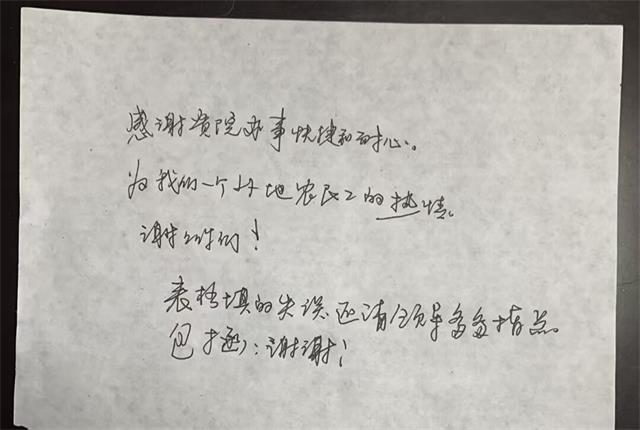 感谢贵院办事快捷和耐心。
为我们一个外地农民工的热情。
谢谢你们！
表格填的失误还请领导多多指点
包涵：谢谢！